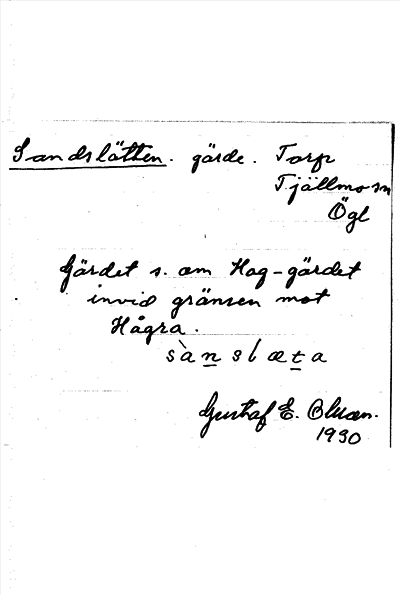 Sandslätten. gärde. Torp
Tjällmo sn
Ögl
Gärdet s. om Hag-gärdet
invid gränsen mot
Hågra.
sànslæta
Gustaf E. Olsson.
1930